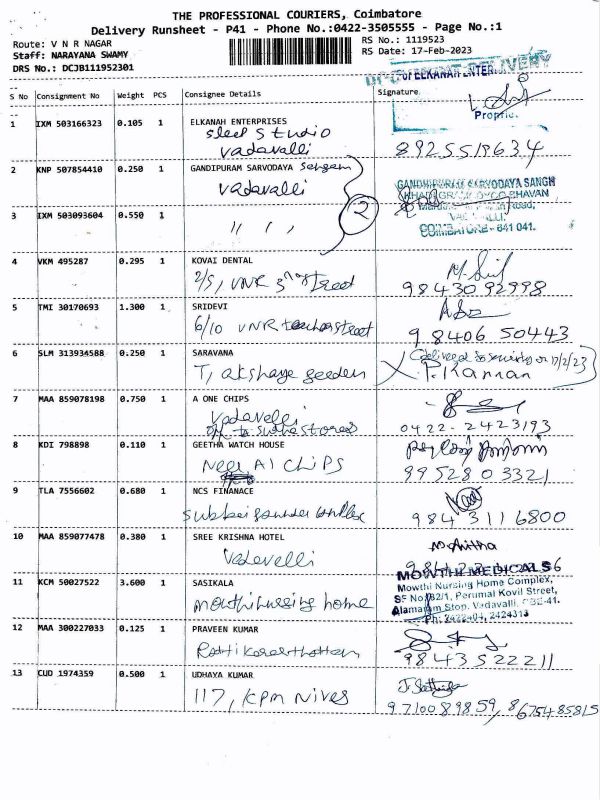 THE PROFESSIONAL COURIERS, Coimbatore
Delivery Runsheet - P41 - Phone No.:0422-3505555 - Page No.:1
Route: V N R NAGAR RS No.: 1119523
Staff: NARAYANA SWAMY RS Date: 17-Feb-2023
DRS No.: DCJB111952301
DELIVERY
S No Consignment No Weight PCS Consignee Details Signature
1 IXM 503166323 0.105 1 ELKANAH ENTERPRISES
Sleep Studio Propri
Vadavalli 8925519634
2 KNP 507854410 0.250 1 GANDIPURAM SARVODAYA Sangam
Vadavalli GANDHIPURAM SARVODAYA SANGH
BHAVAN
3 IXM 503093604 0.550 1 2
" " " COIMBATORE - 641 041.
4 VKM 495287 0.295 1 KOVAI DENTAL
2/5, VNR 3rd Street 98430 92998
5 TMI 30170693 1.300 1 SRIDEVI
6/10 VNR street 98406 50443
6 SLM 313934588 0.250 1 SARAVANA Delivered to security on 17/2/23
7, akshaya garden P. Kannan
7 MAA 859078198 0.750 1 A ONE CHIPS
Vadavelli
0422-2423193
8 KDI 798898 0.110 1 GEETHA WATCH HOUSE
Near A1 chips 99528 03321
9 TLA 7556602 0.680 1 NCS FINANACE
98431 16800
10 MAA 859077478 0.380 1 SREE KRISHNA HOTEL
Vadavelli
11 KCM 50027522 3.600 1 SASIKALA MOWTHI MEDICALS
mowthi nursing home Mowthi Nursing Home Complex,
SF No. 82/1, Perumal Kovil Street,
Alamaram Stop, Vadavalli, CBE-41.
Ph: 2422404, 2424313
12 MAA 300227033 0.125 1 PRAVEEN KUMAR
98435 22211
13 CUD 1974359 0.500 1 UDHAYA KUMAR
117, KPM Nives 9710089859, 8675485815